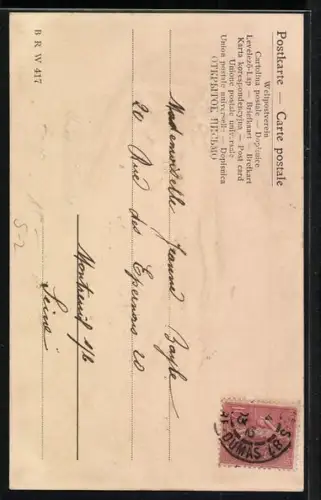 Postkarte — Carte postale
Weltpostverein
Cartolina postale — Dopisnice
Levelező-Lap — Briefkaart — Brefkort
Karta korespondencyjna — Post card
Unione postale universale
Union postale universelle — Dopisnica
ОТКРЫТОЕ ПИСЬМО
Mademoiselle Jeanne Bayle
20 des 20
Montreuil s/b
Seine
B R W 417
52
DUMAS